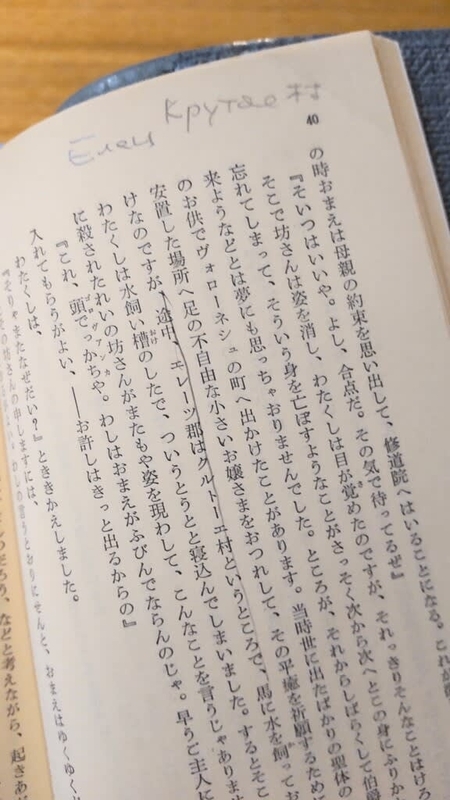 Крутое村
Елец
40
の時おまえは母親の約束を思い出して、修道院へはいることになる。これが
『そいつはいいや。よし、合点だ。その気で待ってるぜ』
そこで坊さんは姿を消し、わたくしは目が覚めたのですが、それっきりそんなことはけろ
忘れてしまって、そういう身を亡ぼすようなことがさっそく次から次へとこの身にふりか
来ようなどとは夢にも思っちゃおりませんでした。ところが、それからしばらくして伯爵
のお供でヴォローネシュの町へ出かけたことがあります。当時世に出たばかりの聖体の
安置した場所へ足の不自由な小さいお嬢さまをおつれして、その平癒を祈願するため
けなのですが、途中、エレーツ郡はクルトーエ村というところで、馬に水を飼ってお
わたくしは水飼い槽のしたで、ついうとうとと寝込んでしまいました。するとそこ
に殺されたれいの坊さんがまたもや姿を現わして、こんなことを言うじゃありま
『これ、頭でっかちや。わしはおまえがふびんでならんのじゃ。早うご主人に
入れてもらうがよい、——お許しはきっと出るからの』
わたくしは、
『そりゃまたなぜだい?』とききかえしました。
坊さんの申しますには、
わしの言うとおりにせんと、おまえはゆくゆく
だろう、などと考えながら、起きあが